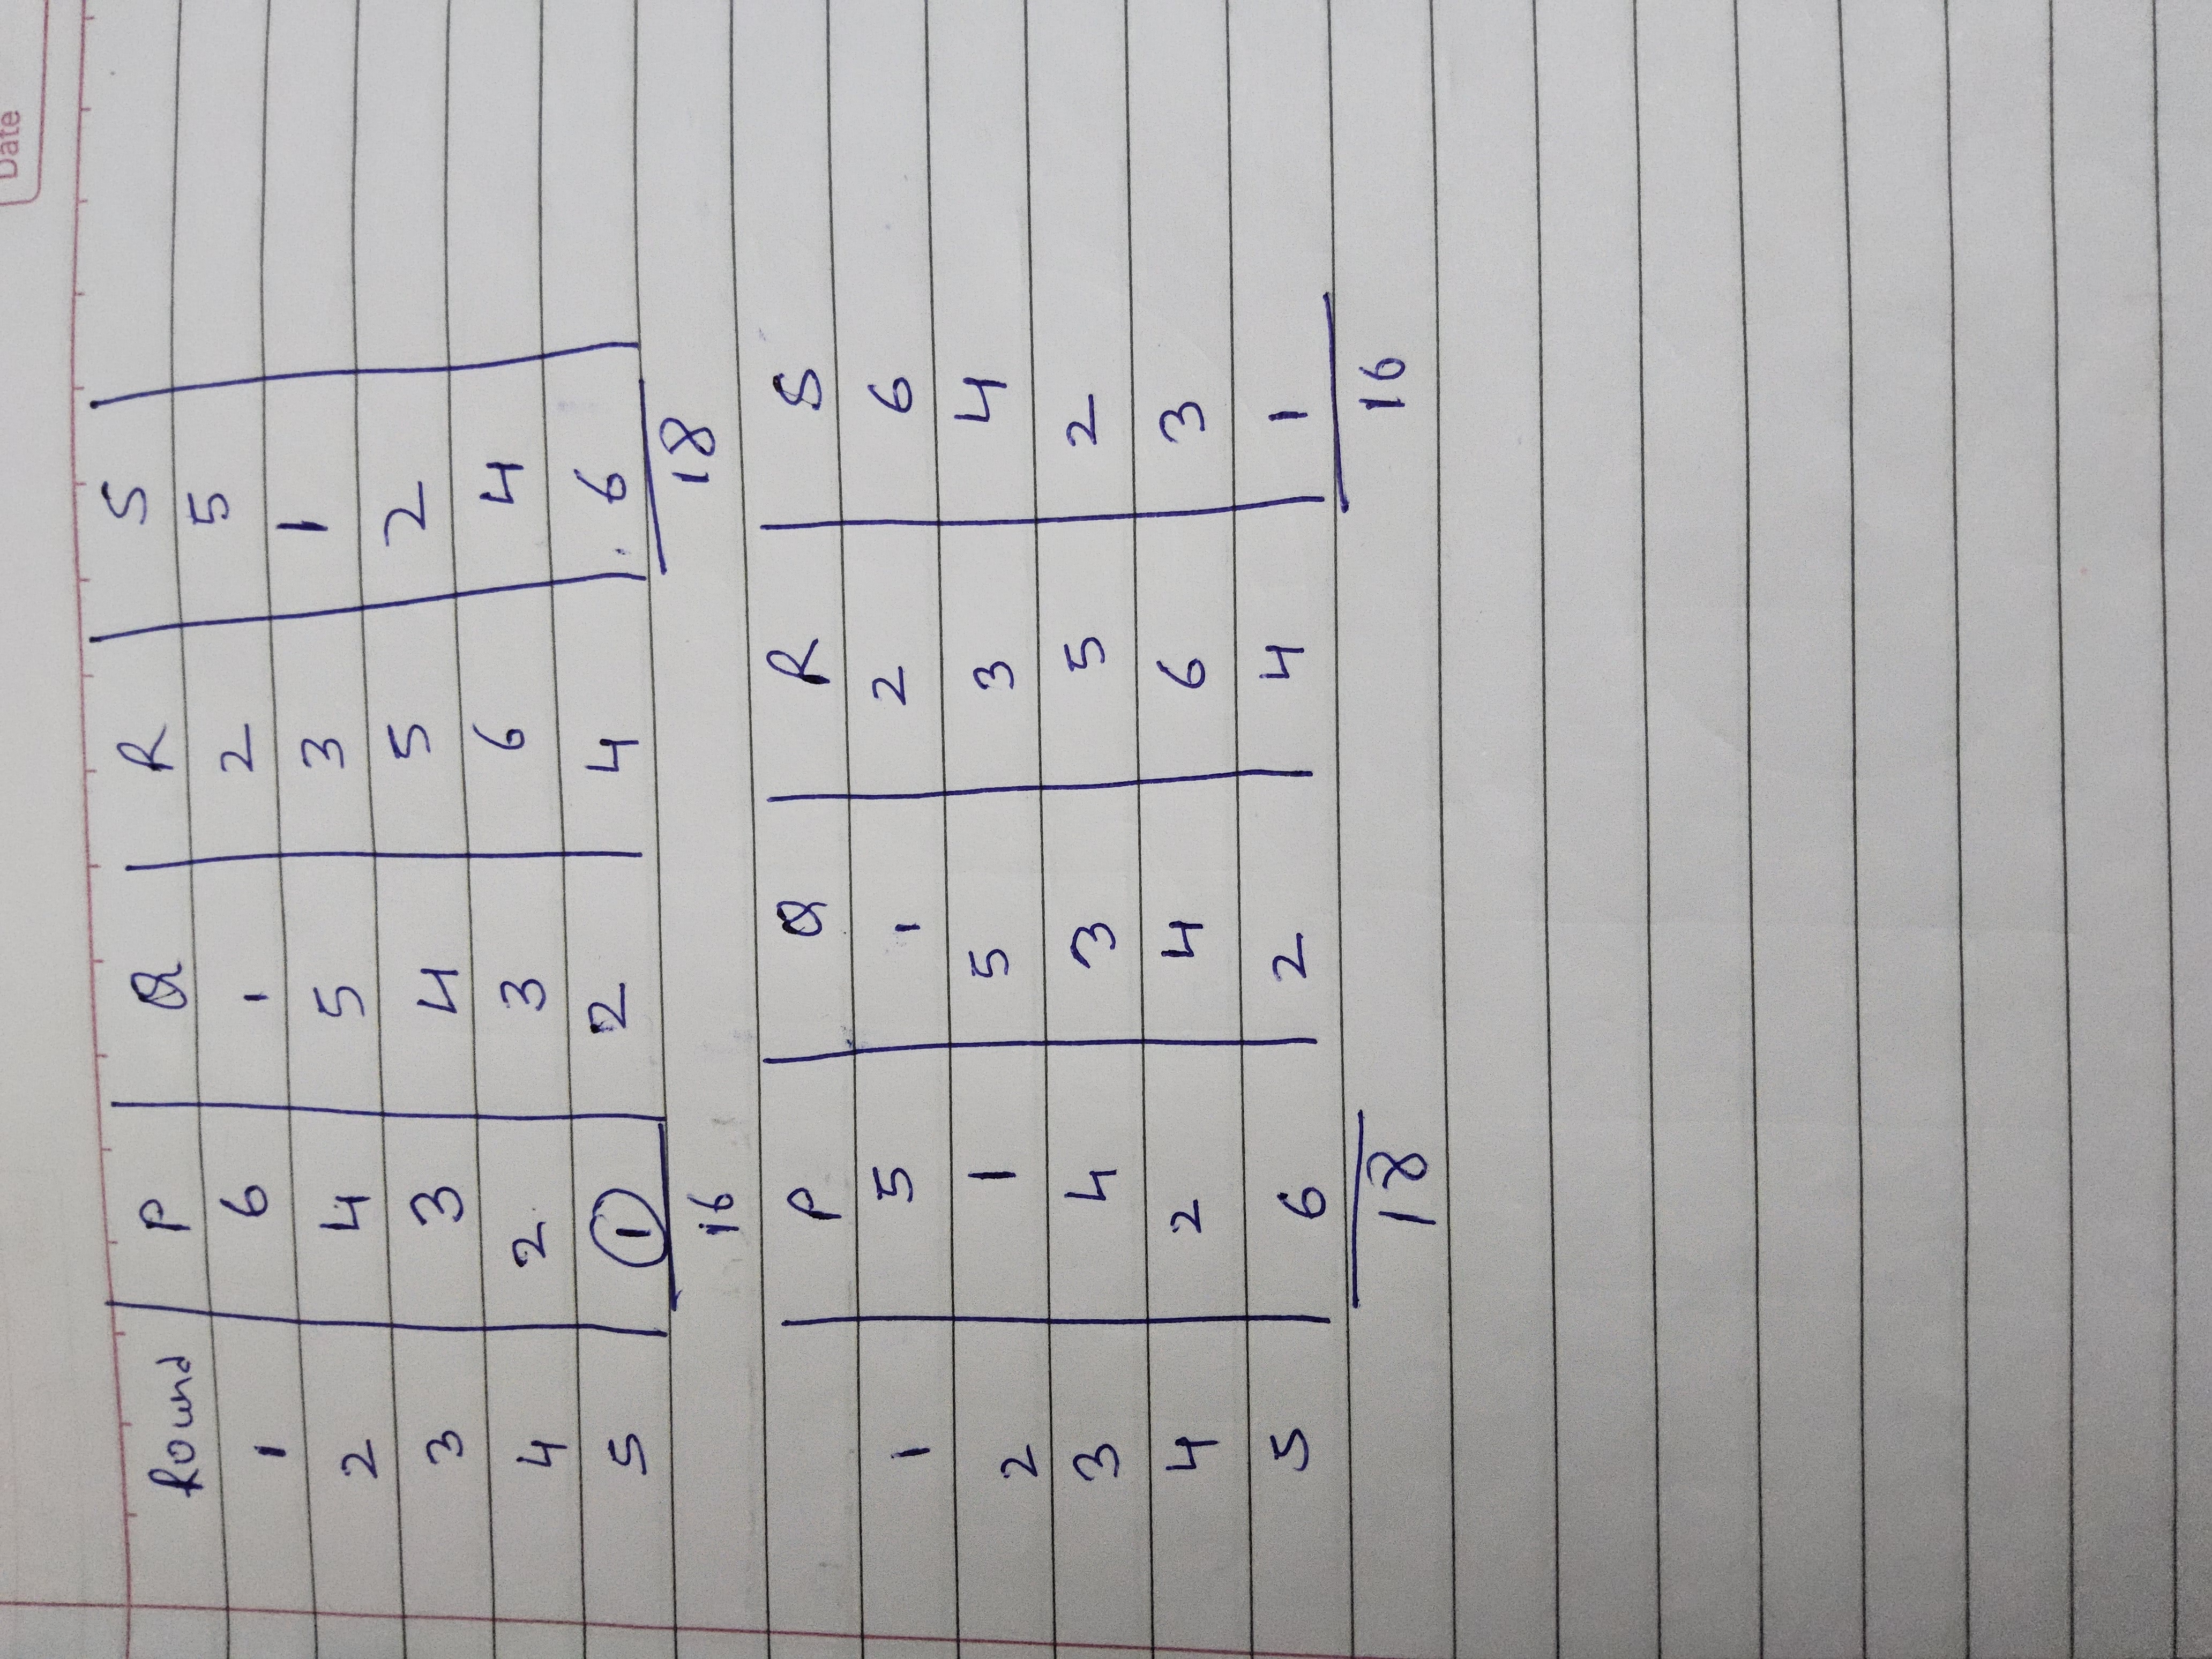 Date
Round P Q R S
1 6 1 2 5
2 4 5 3 1
3 3 4 5 2
4 2 3 6 4
5 1 2 4 6
16 18
P Q R S
1 5 1 2 6
2 1 5 3 4
3 4 3 5 2
4 2 4 6 3
5 6 2 4 1
18 16